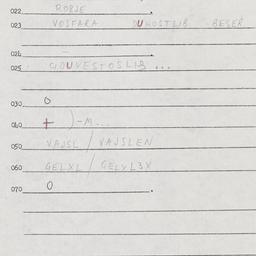 022 ROBJE
023 VOSFARA UHOSTLIB BESER
024 -
025
030 O
040 + )-M...
050 VAJSL / VAJSLEN
060 GELXL / GELYL3X
070 O